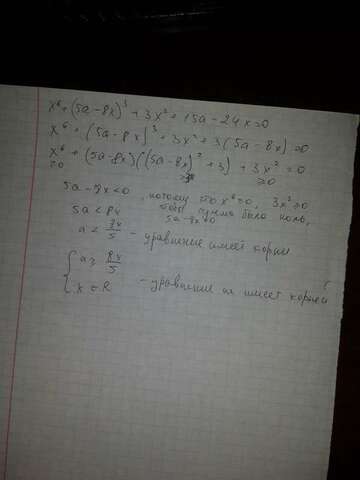 x⁶+(5a-8x)³+3x²+15a-24x=0
x⁶+(5a-8x)³+3x²+3(5a-8x)=0
x⁶+(5a-8x)((5a-8x)²+3)+3x²=0
≥0 ≥3 ≥0
5a-8x<0, потому что x⁶≥0, 3x²≥0
5a<8x чтоб сумма была ноль,
a<8x/5 - уравнение имеет корни
{a≥8x/5
{x∈R - уравнение не имеет корней